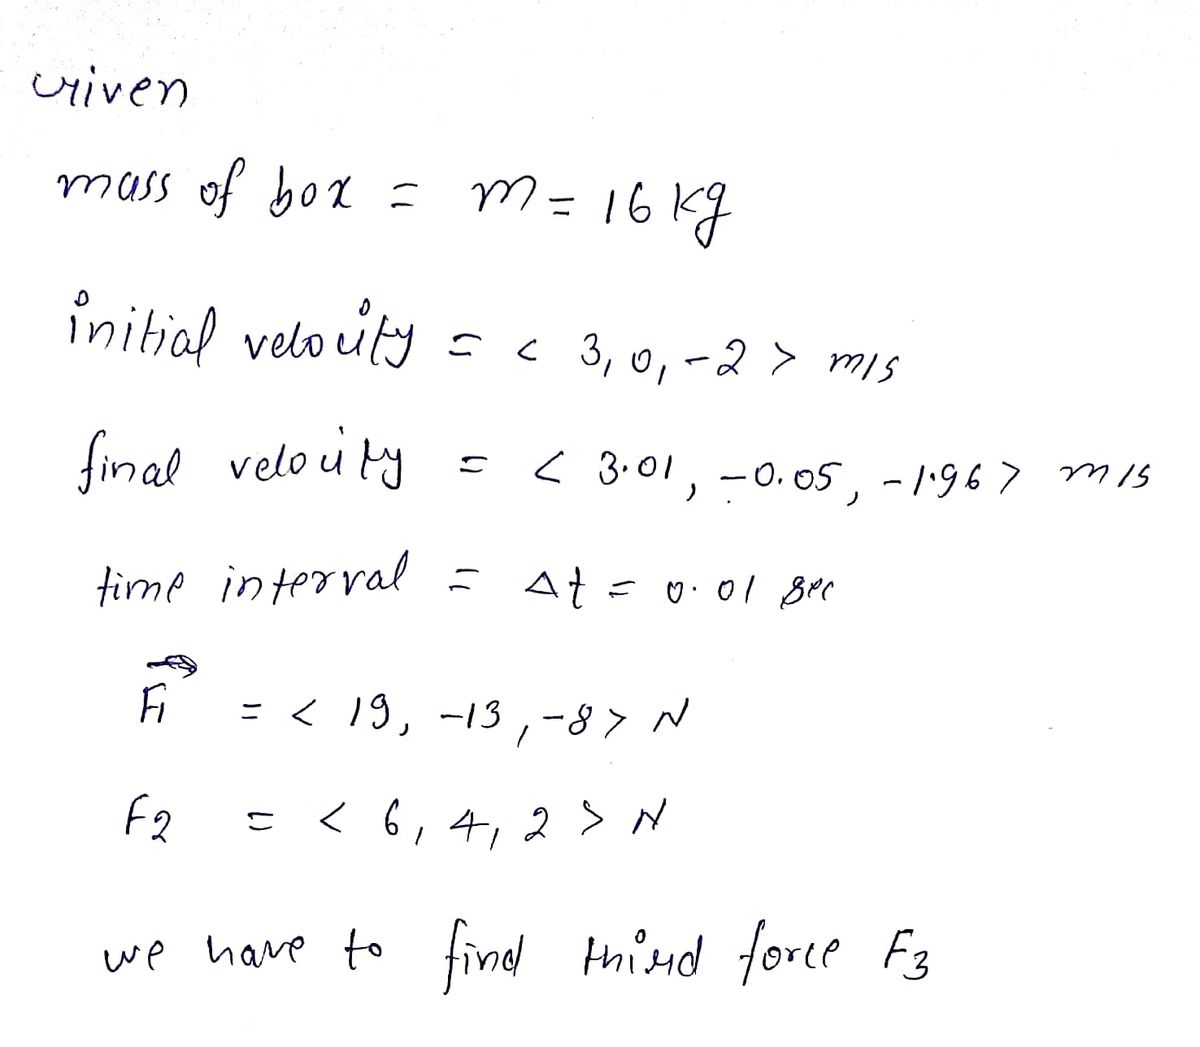 Given
mass of box = m = 16 kg
initial velocity = < 3, 0, -2 > m/s
final velocity = < 3.01, -0.05, -1.96 > m/s
time interval = Δt = 0.01 sec
F1 = < 19, -13, -8 > N
F2 = < 6, 4, 2 > N
we have to find third force F3